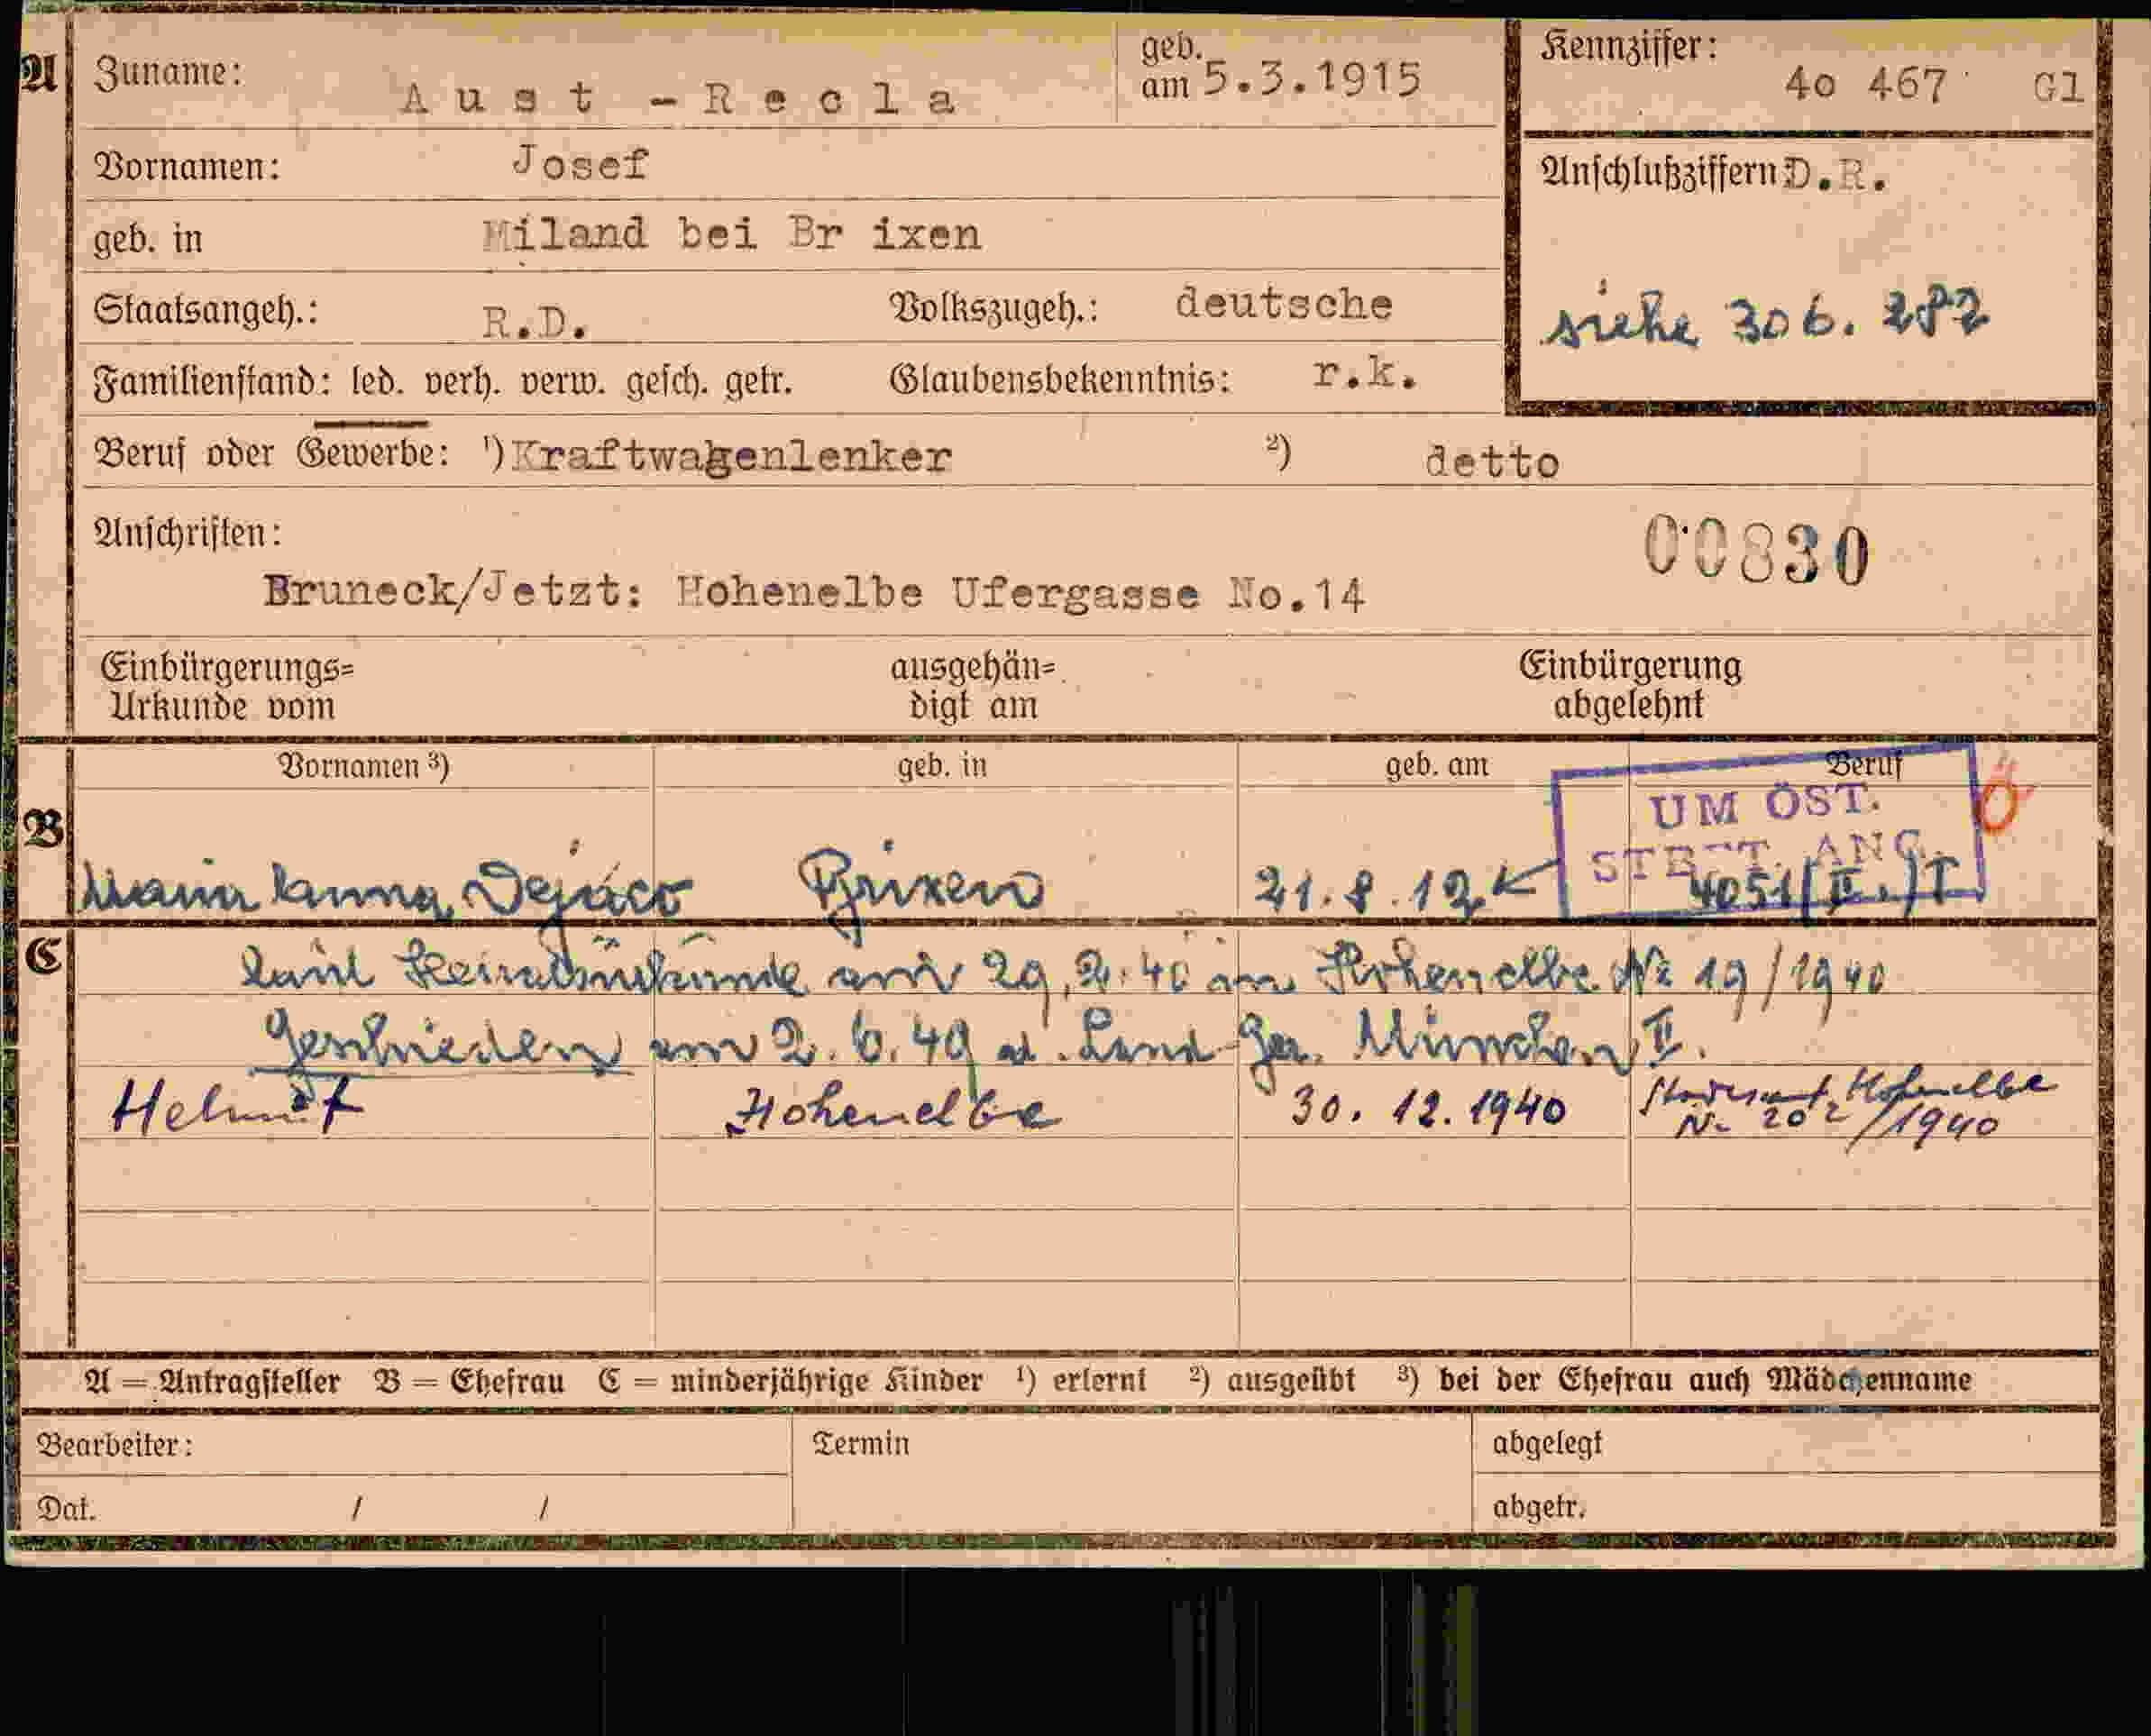 A Zuname: Aust - Recla geb. am 5.3.1915 Kennziffer: 4o 467 Gl
Vornamen: Josef Anschlußziffern D.R.
geb. in Miland bei Br ixen
Staatsangeh.: R.D. Volkszugeh.: deutsche siehe 306. 282
Familienstand: led. verh. verw. gesch. getr. Glaubensbekenntnis: r.k.
Beruf oder Gewerbe: ¹) Kraftwagenlenker ²) detto
Anschriften: 00830
Bruneck/Jetzt: Hohenelbe Ufergasse No.14
Einbürgerungs= ausgehän= Einbürgerung
Urkunde vom digt am abgelehnt
Vornamen ³) geb. in geb. am Beruf
UM ÖST. Ö
B STBGT. ANG.
Maria Anna Dejaco Brixen 21.8.12 4051/II./I
C laut Heiratsurkunde am 29.2.40 in Hohenelbe Nr 19/1940
Geschieden am 2.6.49 Land Ger. München II.
Helmut Hohenelbe 30.12.1940 Standesamt Hohenelbe
Nr 202/1940
A = Antragsteller B = Ehefrau C = minderjährige Kinder ¹) erlernt ²) ausgeübt ³) bei der Ehefrau auch Mädchenname
Bearbeiter: Termin abgelegt
Dat. / / abgetr.